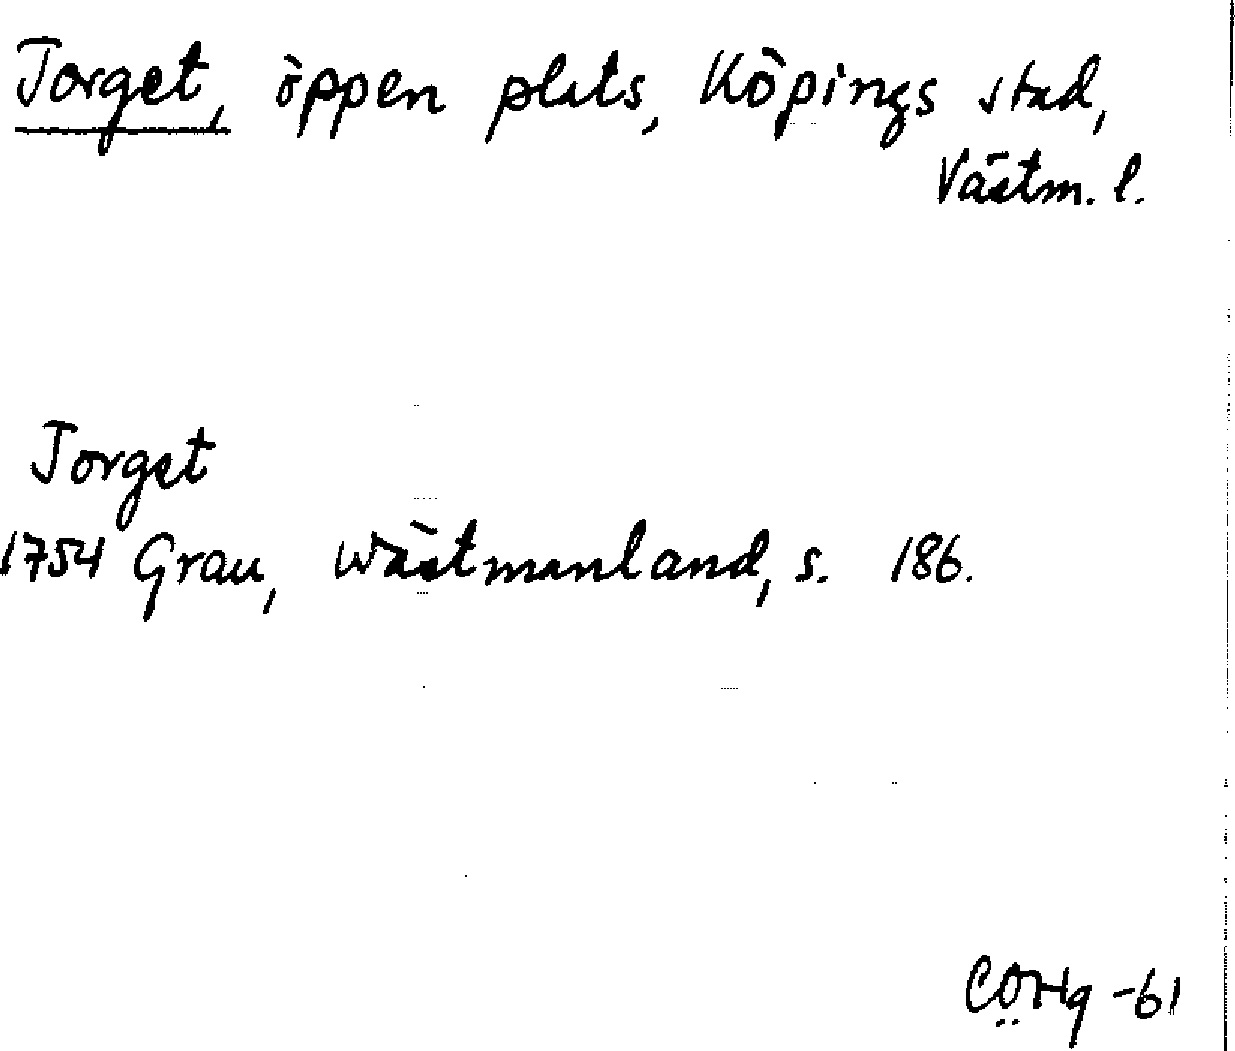 Torget, öppen plats, Köpings stad,
Västm. l.
Torget
1754 Grau, Wästmanland, s. 186.
COHg -61